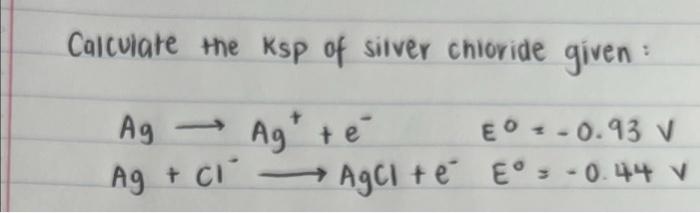 Calculate the Ksp of silver chloride given:
Ag → Ag⁺ + e⁻ E° = -0.93 V
Ag + Cl⁻ → AgCl + e⁻ E° = -0.44 V